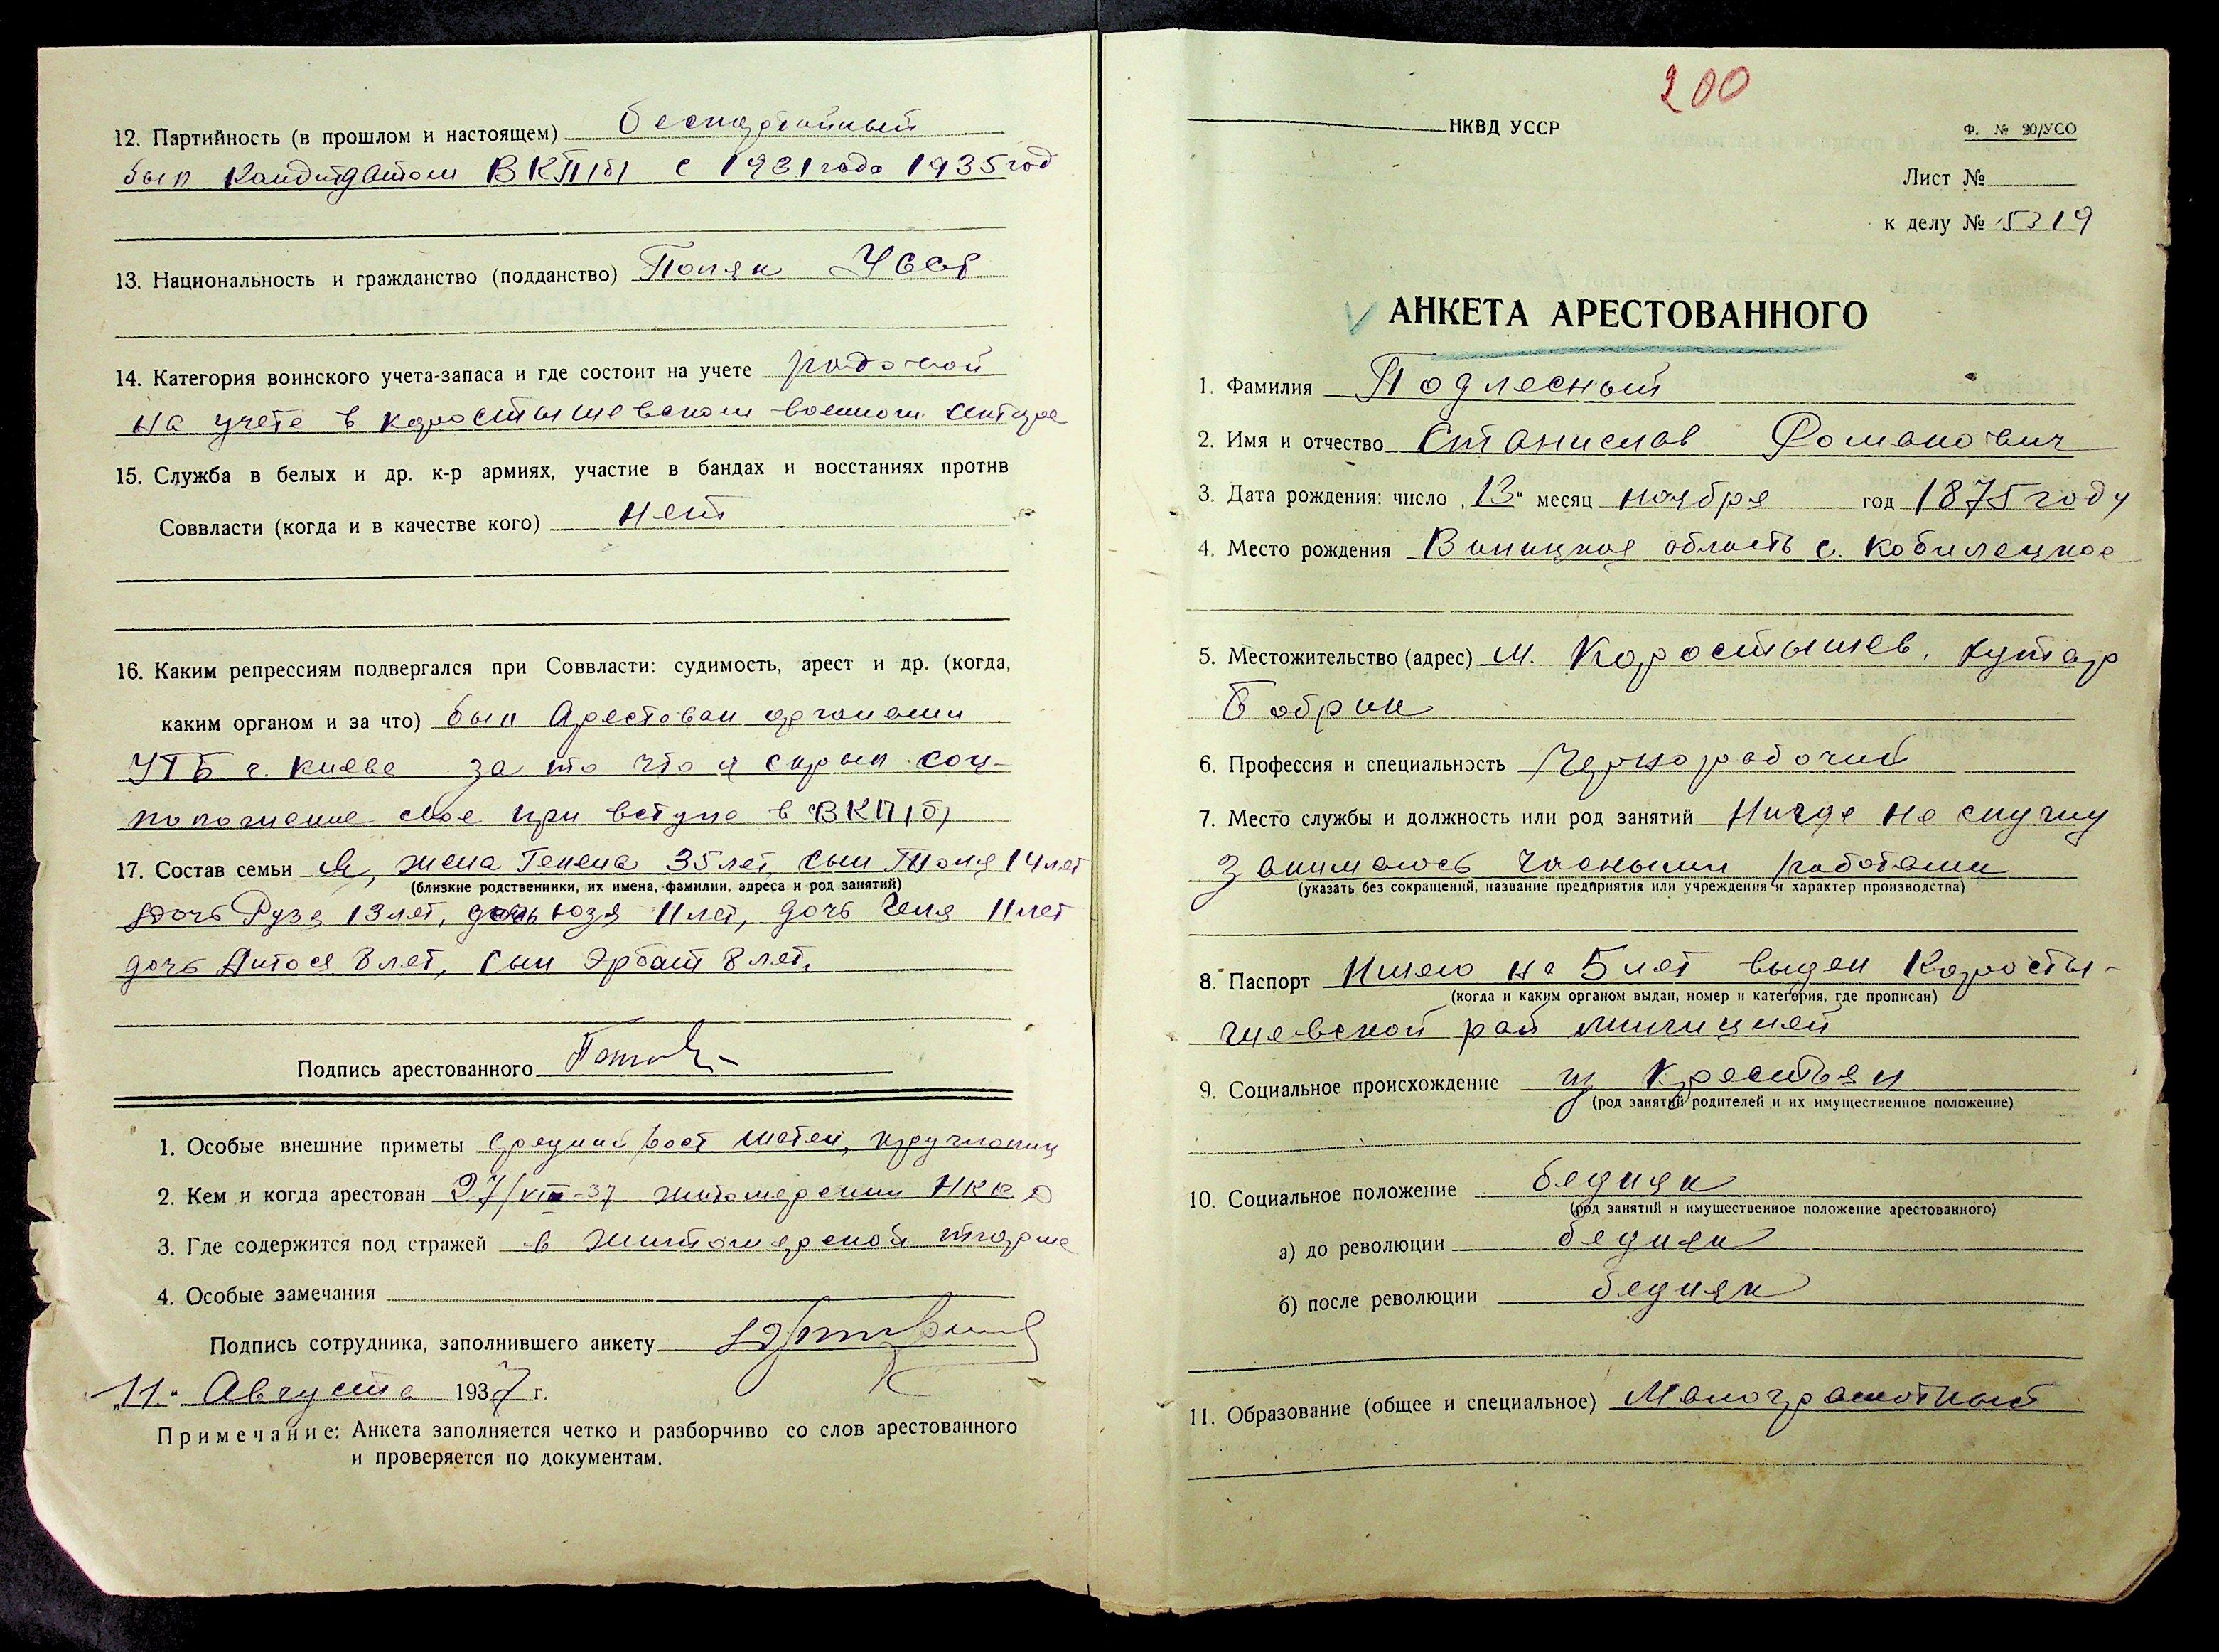 12. Партийность (в прошлом и настоящем) беспартийный
был кандидатом ВКП(б) с 1931 года 1935 год
13. Национальность и гражданство (подданство) Поляк УССР
14. Категория воинского учета-запаса и где состоит на учете рядовой
на учете в коростышевском военном
15. Служба в белых и др. к-р армиях, участие в бандах и восстаниях против
Соввласти (когда и в качестве кого) нет
16. Каким репрессиям подвергался при Соввласти: судимость, арест и др. (когда,
каким органом и за что) был Арестован органами
УГБ г. Киева за то что я скрыл соц-
положение свое при вступе в ВКП(б)
17. Состав семьи Я, жена Гелена 35 лет, сын Толя 14 лет
(близкие родственники, их имена, фамилии, адреса и род занятий)
дочь Рузя 13 лет, дочь Юзя 11 лет, дочь Геля 11 лет
дочь Антося 8 лет, сын 8 лет,
Подпись арестованного
1. Особые внешние приметы средний рост шатен, круглолиц
2. Кем и когда арестован 27/VIII-37 житомерским НКВД
3. Где содержится под стражей в житомерской тюрме
4. Особые замечания
Подпись сотрудника, заполнившего анкету
„11“ Августа 1937 г.
Примечание: Анкета заполняется четко и разборчиво со слов арестованного
и проверяется по документам.
200
НКВД УССР
Ф. № 20/УСО
Лист №
к делу № 5319
АНКЕТА АРЕСТОВАННОГО
1. Фамилия Подлесный
2. Имя и отчество Станислав Романович
3. Дата рождения: число „13“ месяц ноября год 1875 году
4. Место рождения Виницкая область с. Кобилецкое
5. Местожительство (адрес) м. Коростышев, хутар
Бобрик
6. Профессия и специальность Чернорабочий
7. Место службы и должность или род занятий Нигде не служу
занимаюсь часными работами
(указать без сокращений, название предприятия или учреждения и характер производства)
8. Паспорт Имею на 5 лет выдан Коросты-
(когда и каким органом выдан, номер и категория, где прописан)
шевской рай милицией
9. Социальное происхождение из крестьян
(род занятий родителей и их имущественное положение)
10. Социальное положение бедняк
(род занятий и имущественное положение арестованного)
а) до революции бедняк
б) после революции бедняк
11. Образование (общее и специальное) Малограмотный